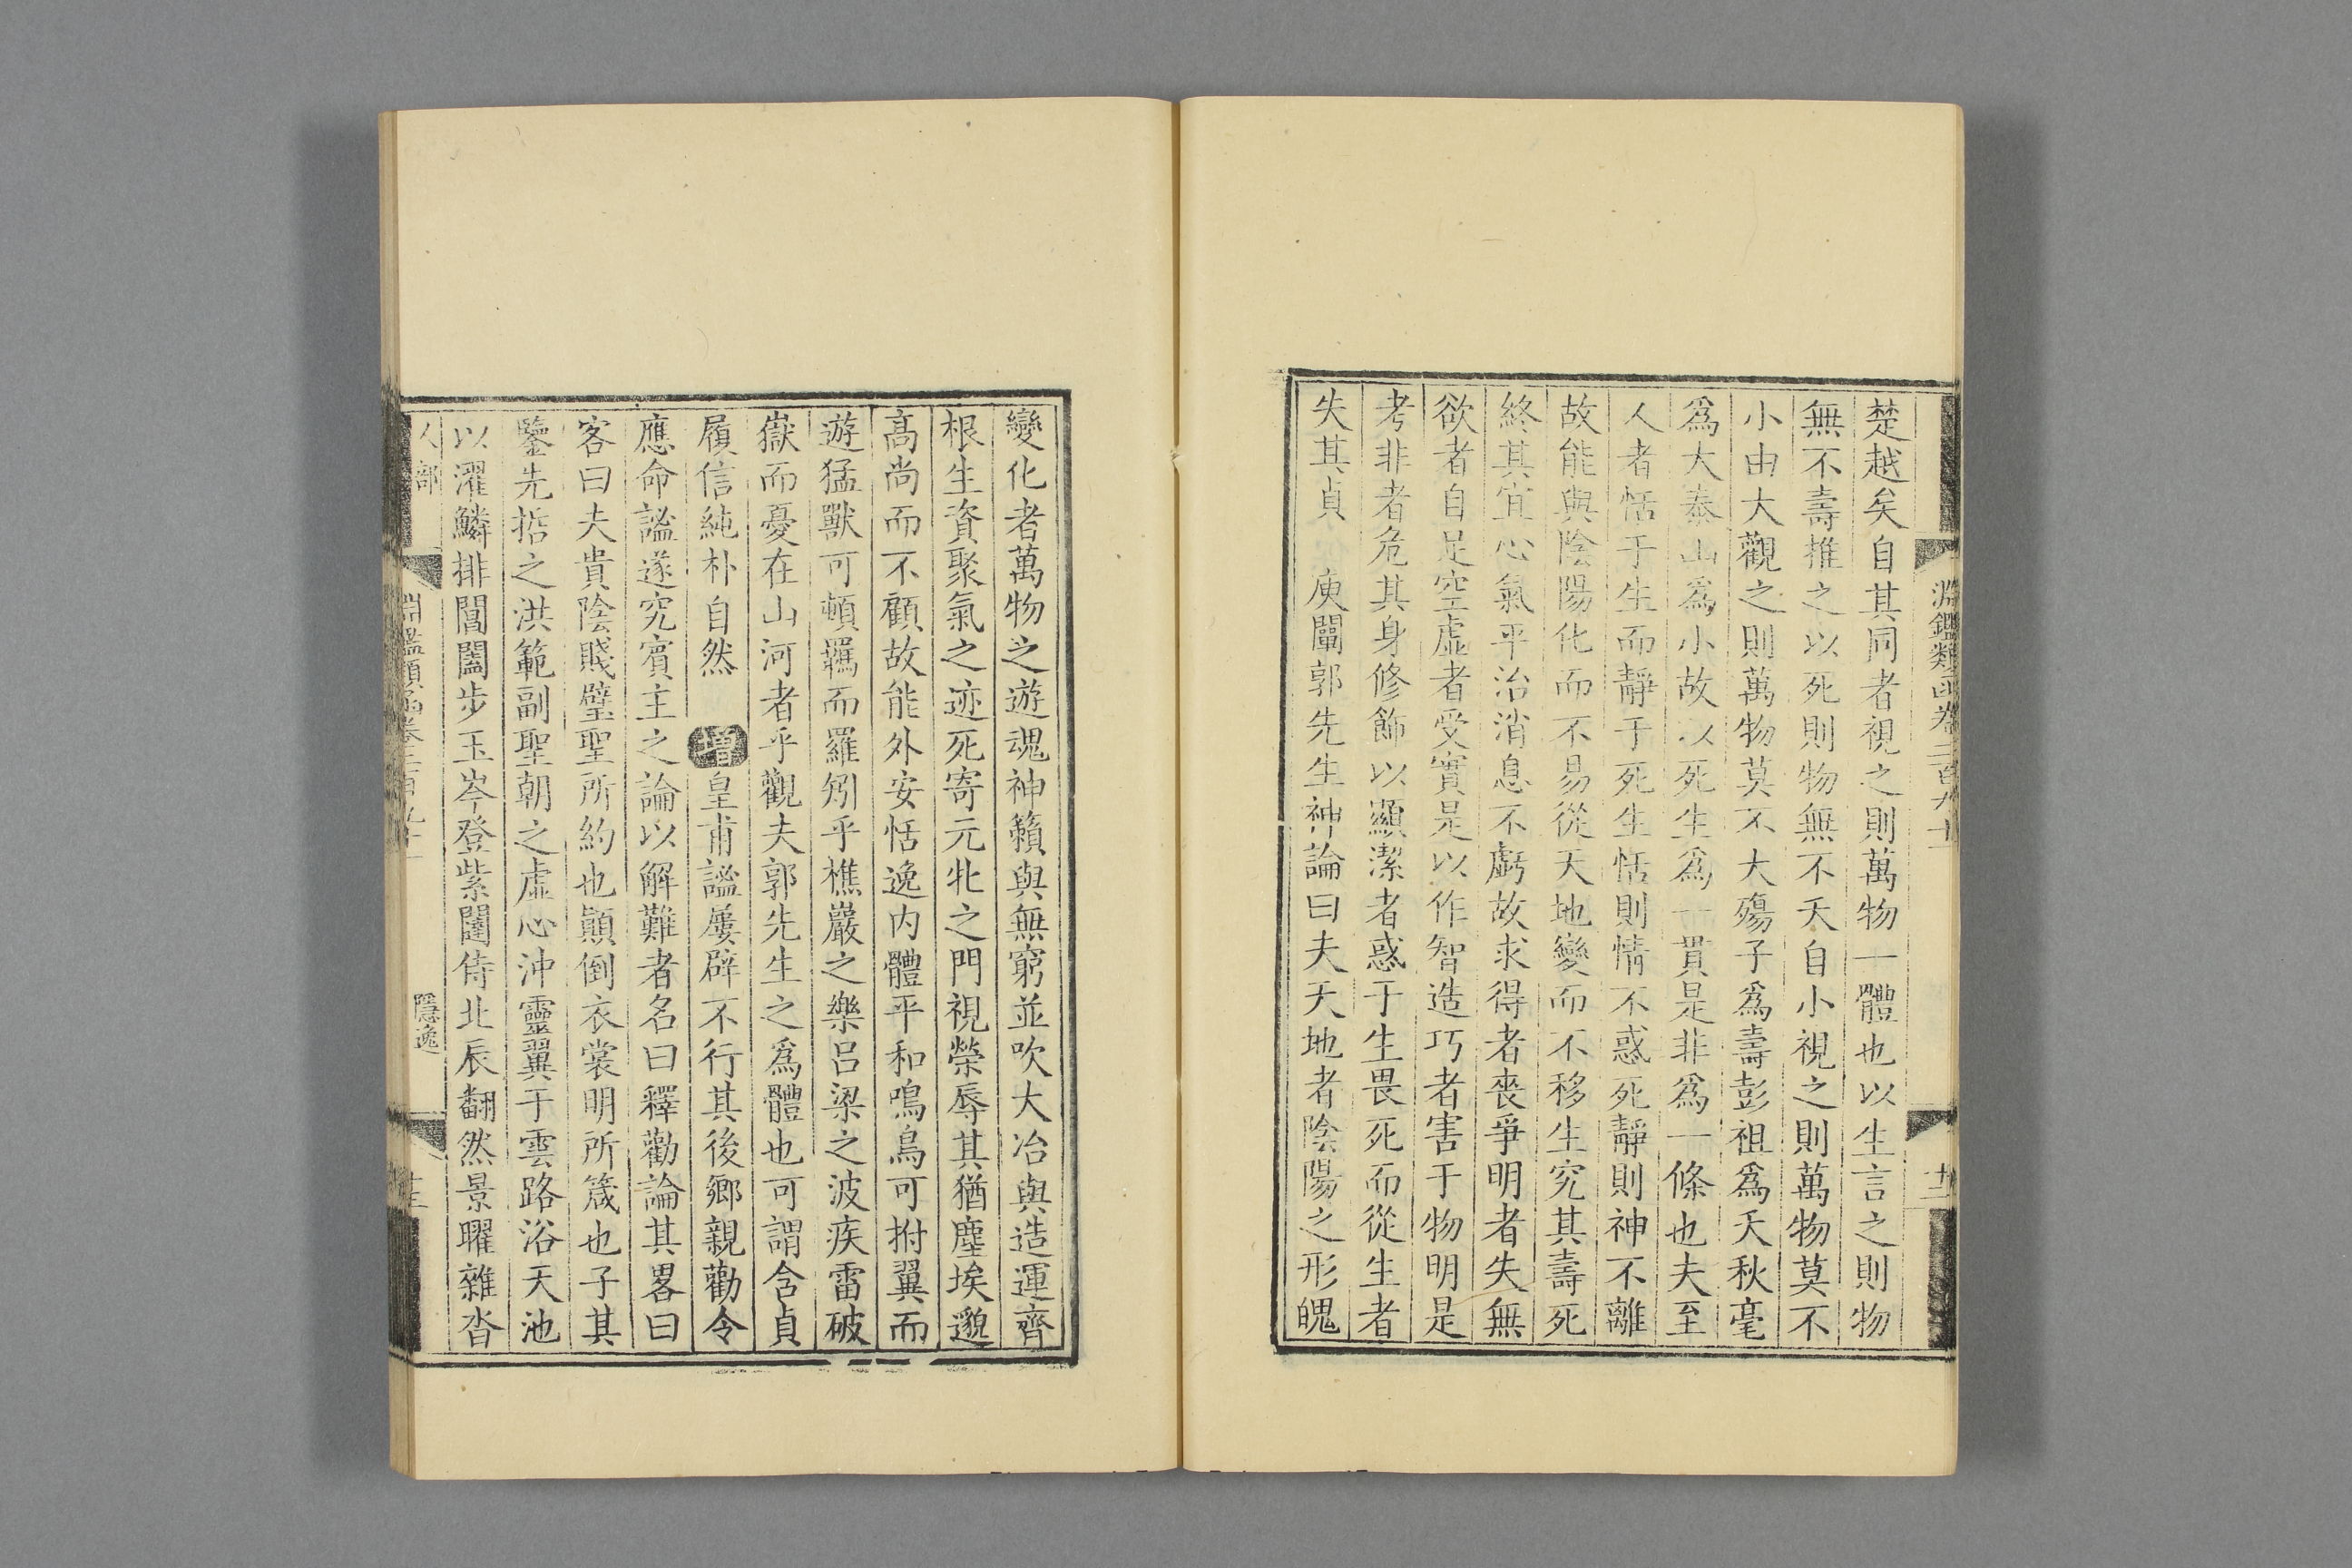 淵鑑類函卷二百九十
十二
楚越矣自其同者視之則萬物一體也以生言之則物
無不壽推之以死則物無不夭自小視之則萬物莫不
小由大觀之則萬物莫不大殤子爲壽彭祖爲夭秋毫
爲大泰山爲小故以死生爲一貫是非爲一條也夫至
人者恬于生而靜于死生恬則情不惑死靜則神不離
故能與陰陽化而不易從天地變而不移生究其壽死
終其宜心氣平治消息不虧故求得者喪爭明者失無
欲者自足空虛者受實是以作智造巧者害于物明是
考非者危其身修飾以顯潔者惑于生畏死而從生者
失其貞 庾闡郭先生神論曰夫天地者陰陽之形魄
變化者萬物之遊魂神籟與無窮並吹大冶與造運齊
根生資聚氣之迹死寄元牝之門視榮辱其猶塵埃邈
高尚而不顧故能外安恬逸内體平和鳴鳥可拊翼而
遊猛獸可頓羈而羅矧乎樵巖之樂呂梁之波疾雷破
嶽而憂在山河者乎觀夫郭先生之爲體也可謂含貞
履信純朴自然 增皇甫謐屢辟不行其後鄉親勸令
應命謐遂究賓主之論以解難者名曰釋勸論其畧曰
客曰夫貴陰賤璧聖所約也顛倒衣裳明所箴也子其
鑒先哲之洪範副聖朝之虛心沖靈翼于雲路浴天池
以濯鱗排閶闔步玉岑登紫闥侍北辰翻然景曜雜沓
人部
隱逸